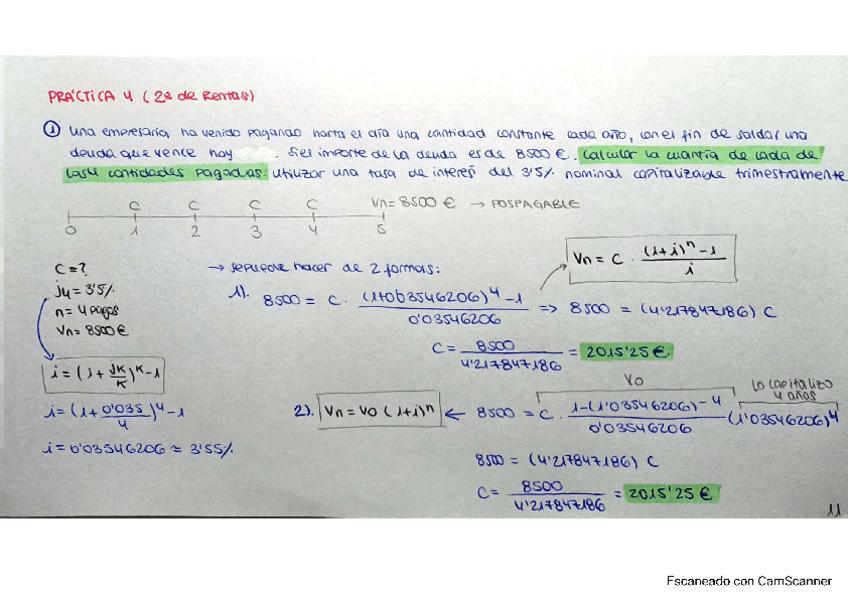 PRÁCTICA 4 (2ª de Rentas)
① Una empresaria, ha venido pagando hasta el día una cantidad constante cada año, con el fin de saldar una
deuda que vence hoy. Si el importe de la deuda es de 8500 €. Calcular la cuantía de cada de
las 4 cantidades pagadas. Utilizar una tasa de interés del 3'5% nominal capitalizable trimestramente
C C C C Vn = 8500 € → POSPAGABLE
0 1 2 3 4 5
C = ?
J4 = 3'5%
n = 4 pagos
Vn = 8500 €
i = (1 + JK/K)^K - 1
i = (1 + 0'035/4)^4 - 1
i = 0'03546206 ≈ 3'55%
→ se puede hacer de 2 formas:
Vn = C · ((1+i)^n - 1)/i
1). 8500 = C · ((1+0'03546206)^4 - 1)/0'03546206 => 8500 = (4'217847186) C
C = 8500/4'217847186 = 2015'25 €
V0 Lo capitalizo 4 años
2). Vn = V0 (1+i)^n ← 8500 = C · (1-(1'03546206)-4)/0'03546206 (1'03546206)^4
8500 = (4'217847186) C
C = 8500/4'217847186 = 2015'25 €
11
Escaneado con CamScanner